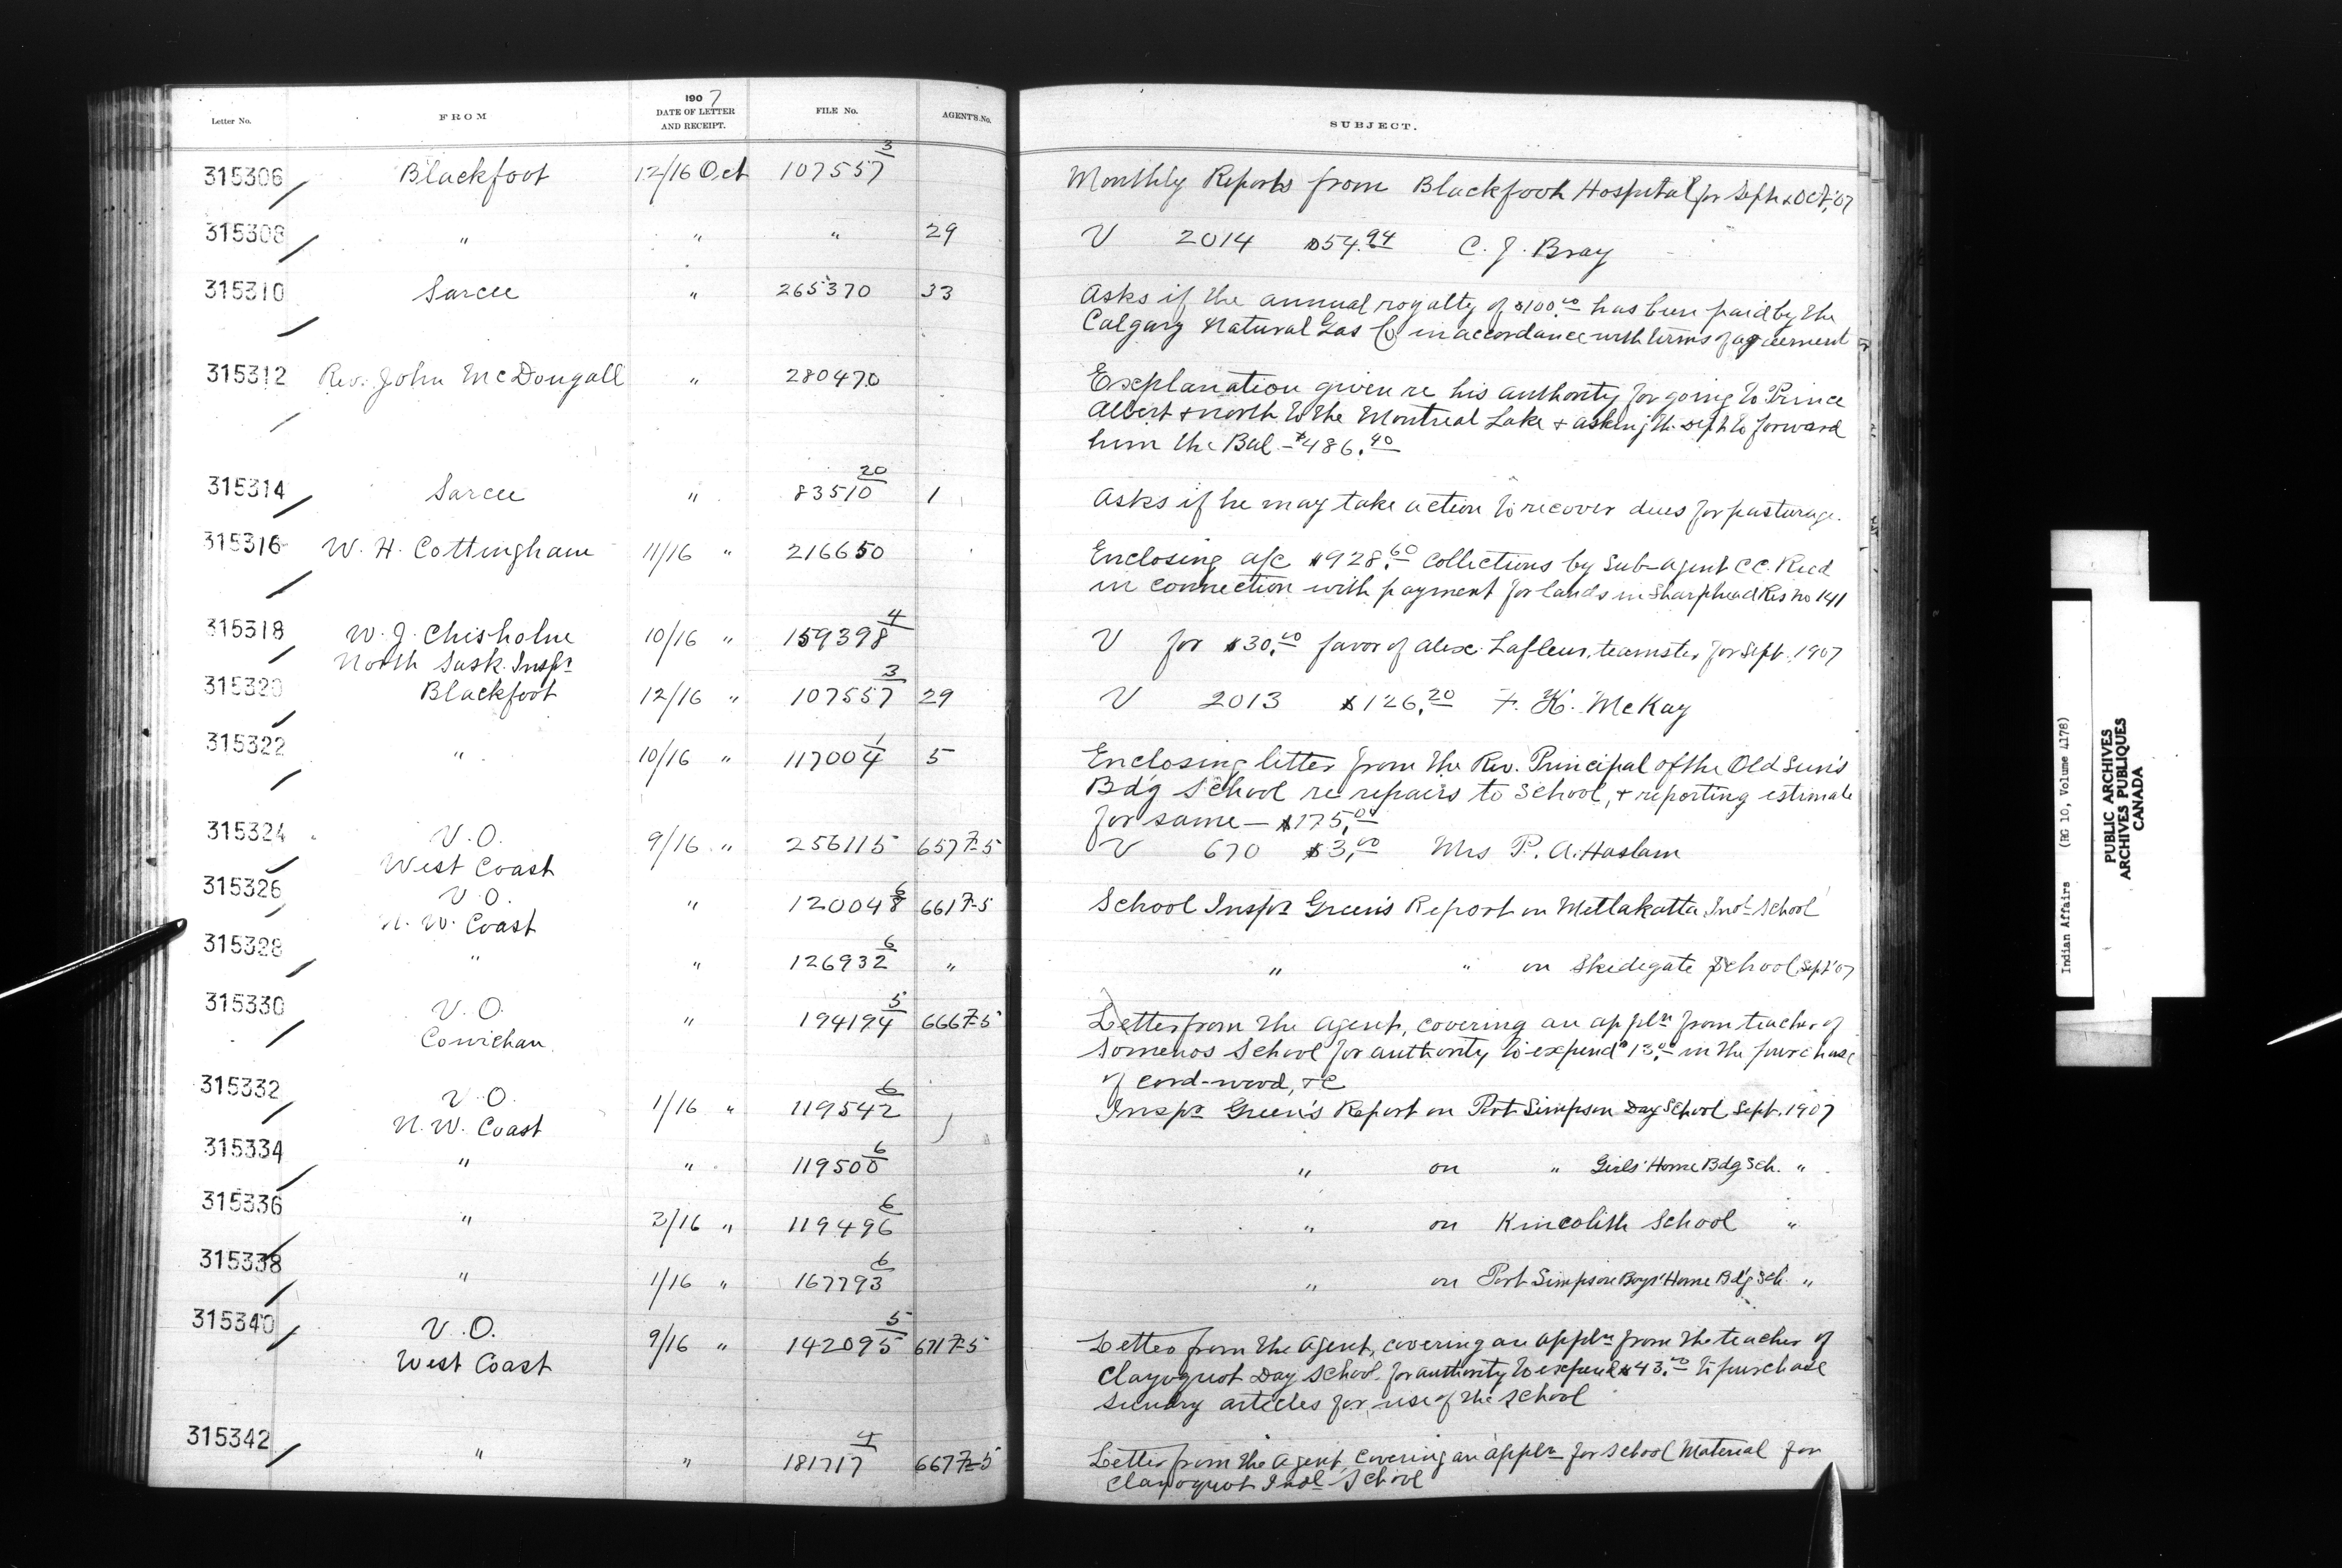 1907
Letter No. FROM DATE OF LETTER AND RECEIPT. FILE No. AGENT'S No. SUBJECT.
315306 Blackfoot 12/16 Oct 107557 3 Monthly Reports from Blackfoot Hospital for Sept & Oct, '07
315308 " " " 29 V 2014 $54.94 C. J. Bray
315310 Sarcee " 265370 33 Asks if the annual royalty of $100.00 has been paid by the
Calgary Natural Gas Co in accordance with terms of agreement
315312 Rev. John McDougall " 280470 Explanation given re his authority for going to Prince
Albert & north to the Montreal Lake & asking the Dept to forward
him the Bal - $486.40
315314 Sarcee " 83510 20 1 Asks if he may take action to recover dues for pasturage.
315316 W. H. Cottingham 11/16 " 216650 Enclosing a/c $928.60 collections by Sub-agent C C. Reed
in connection with payment for lands in Sharphead Res no 141
315318 W. J. Chisholm 10/16 " 159398 4 V for $30.00 favor of Alex. Lafleur, teamster for Sept. 1907
North Sask. Inspr
315320 Blackfoot 12/16 " 107557 3 29 V 2013 $126.20 F. K. McKay
315322 " 10/16 " 117004 1 5 Enclosing letter from the Rev. Principal of the Old Sun's
Bdg School re repairs to School, & reporting estimate
for same — $175.00
315324 V.O. 9/16 " 256115 657 7-5 V 670 $3.00 Mrs P. A. Haslam
West Coast
315326 V.O. " 120048 6 661 7-5 School Inspr Green's Report on Metlakatla Indl School
N. W. Coast
315328 " " 126932 6 " " " on Skidegate School Sept '07
315330 V.O. " 194194 5 666 7-5 Letter from the Agent, covering an appln from teacher of
Cowichan Somenos School for authority to expend $13.00 in the purchase
of cord-wood, &c
315332 V.O. 1/16 " 119542 6 Inspr Green's Report on Port Simpson Day School Sept. 1907
N. W. Coast
315334 " " 119500 6 " on " Girls' Home Bdg Sch. "
315336 " 3/16 " 119496 6 " on Kincolith School "
315338 " 1/16 " 167793 6 " on Port Simpson Boys' Home Bdg Sch. "
315340 V.O. 9/16 " 142095 5 671 7-5 Letter from the Agent, covering an appln from the teacher of
West Coast Clayoquot Day School for authority to expend $43.00 to purchase
sundry articles for use of the school
315342 " " 181717 4 667 7-5 Letter from the Agent, covering an appln for School Material for
Clayoquot Indl School
Indian Affairs (RG 10, Volume 4178)
PUBLIC ARCHIVES
ARCHIVES PUBLIQUES
CANADA